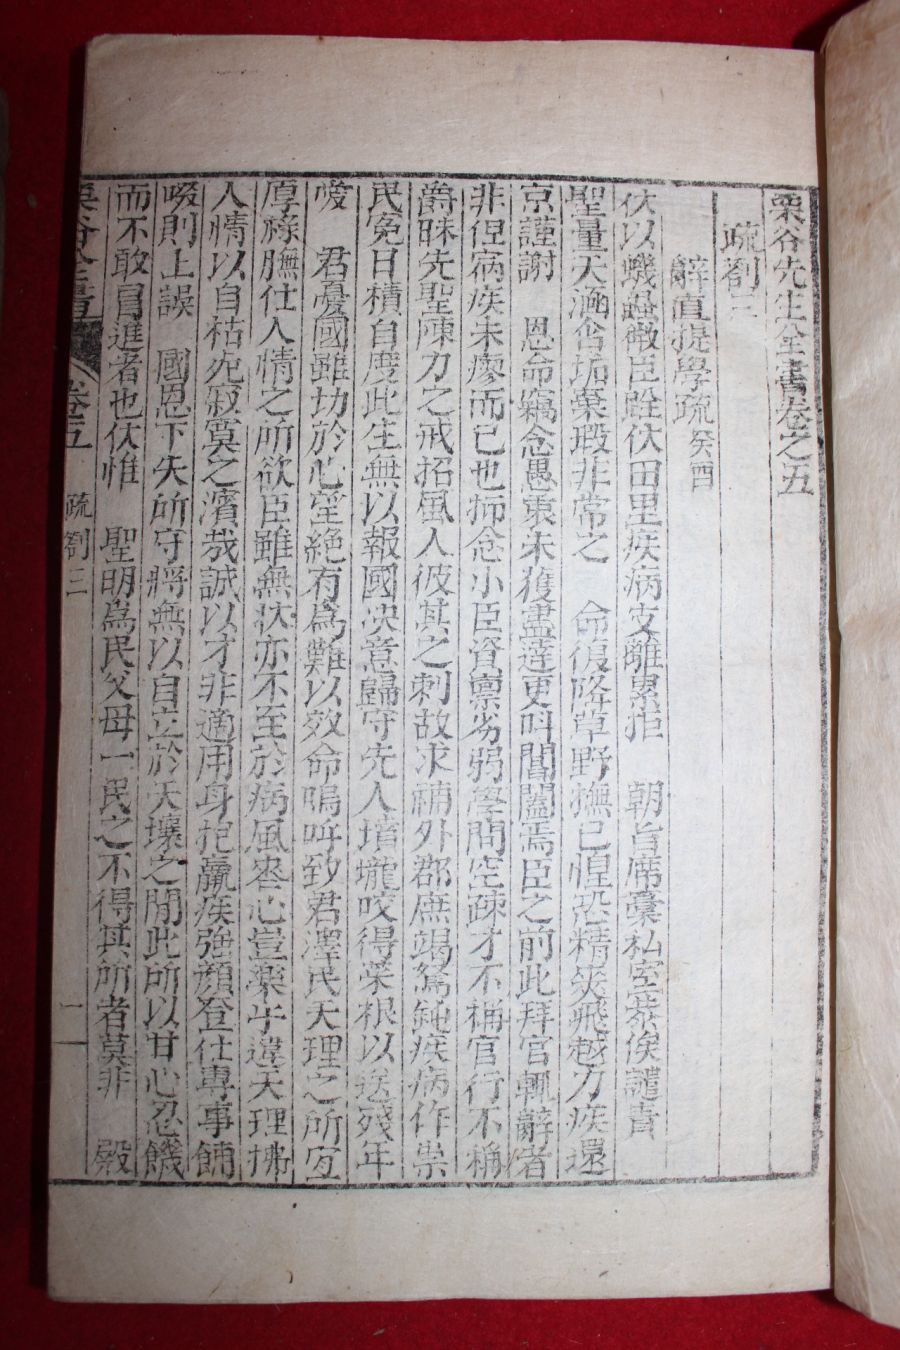 栗谷先生全書卷之五
疏劄三
辭直提學疏 癸酉
伏以蟣蝨微臣跧伏田里疾病支離累拒 朝旨席藁私室恭俟譴責
聖量天涵含垢棄瑕非常之 命復降草野撫己惶恐精爽飛越力疾還
京謹謝 恩命竊念愚衷未獲盡達更叫閽闔焉臣之前此拜官輒辭者
非但病疾未瘳而已也抑念小臣資稟劣弱學問空疎才不稱官行不稱
爵昧先聖陳力之戒招風人彼其之刺故求補外郡庶竭駑鈍疾病作祟
民免日積自度此生無以報國決意歸守先人墳壠咬得菜根以送殘年
愛 君憂國雖切於心望絶有爲難以效命嗚呼致君澤民天理之所宜
厚祿膴仕人情之所欲臣雖無狀亦不至於病風喪心豈樂乎違天理拂
人情以自枯死寂寞之濱哉誠以才非適用身抱羸疾強顔登仕專事餔
啜則上誤 國恩下失所守將無以自立於天壤之閒此所以甘心忍饑
而不敢冒進者也伏惟 聖明爲民父母一民之不得其所者莫非 殿
栗谷全書 卷五 疏劄三 一